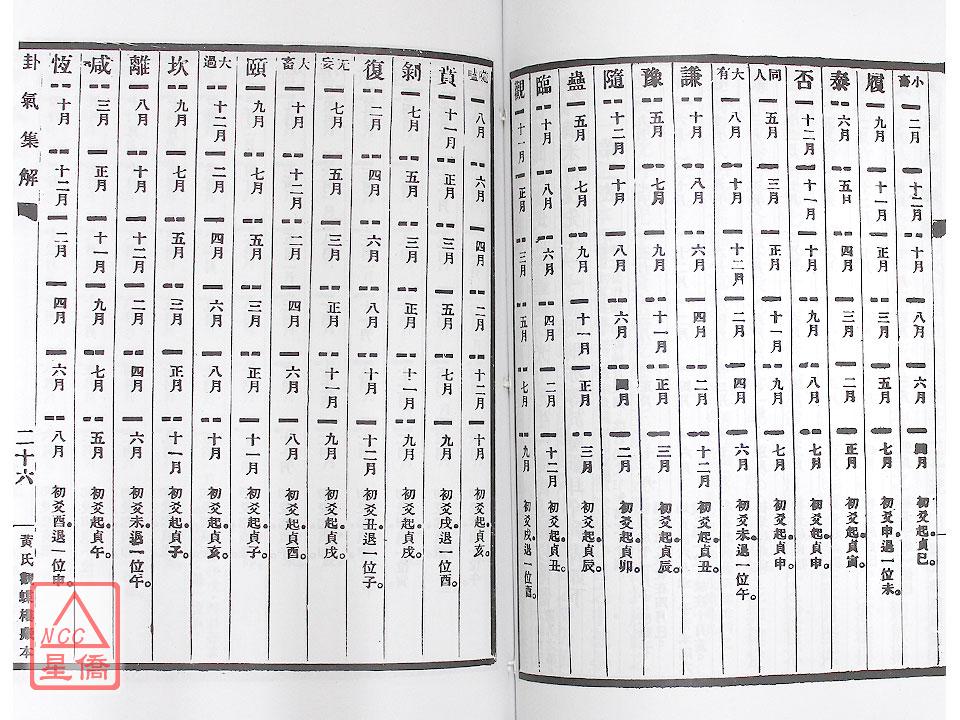 小畜 二月 十二月 十月 八月 六月 四月 初爻起貞巳。
履 九月 十一月 正月 三月 五月 七月 初爻申退一位未。
泰 六月 五月 四月 三月 二月 正月 初爻起貞寅。
否 十二月 十一月 十月 九月 八月 七月 初爻起貞申。
同人 五月 三月 正月 十一月 九月 七月 初爻起貞申。
大有 八月 十月 十二月 二月 四月 六月 初爻未退一位午。
謙 十月 八月 六月 四月 二月 十二月 初爻起貞丑。
豫 五月 七月 九月 十一月 正月 三月 初爻起貞辰。
隨 十二月 十月 八月 六月 四月 二月 初爻起貞卯。
蠱 五月 七月 九月 十一月 正月 三月 初爻起貞辰。
臨 十月 八月 六月 四月 二月 十二月 初爻起貞丑。
觀 十一月 正月 三月 五月 七月 九月 初爻戌退一位酉。
噬嗑 八月 六月 四月 二月 十二月 十月 初爻起貞亥。
賁 十一月 正月 三月 五月 七月 九月 初爻戌退一位酉。
剝 七月 五月 三月 正月 十一月 九月 初爻起貞戌。
復 二月 四月 六月 八月 十月 十二月 初爻丑退一位子。
无妄 七月 五月 三月 正月 十一月 九月 初爻起貞戌。
大畜 十月 十二月 二月 四月 六月 八月 初爻起貞酉。
頤 九月 七月 五月 三月 正月 十一月 初爻起貞子。
大過 十二月 二月 四月 六月 八月 十月 初爻起貞亥。
坎 九月 七月 五月 三月 正月 十一月 初爻起貞子。
離 八月 十月 十二月 二月 四月 六月 初爻未退一位午。
咸 三月 正月 十一月 九月 七月 五月 初爻起貞午。
恆 十月 十二月 二月 四月 六月 八月 初爻酉退一位申。
卦氣集解 二十六 黃氏觀蜨樓藏本
NCC
星僑